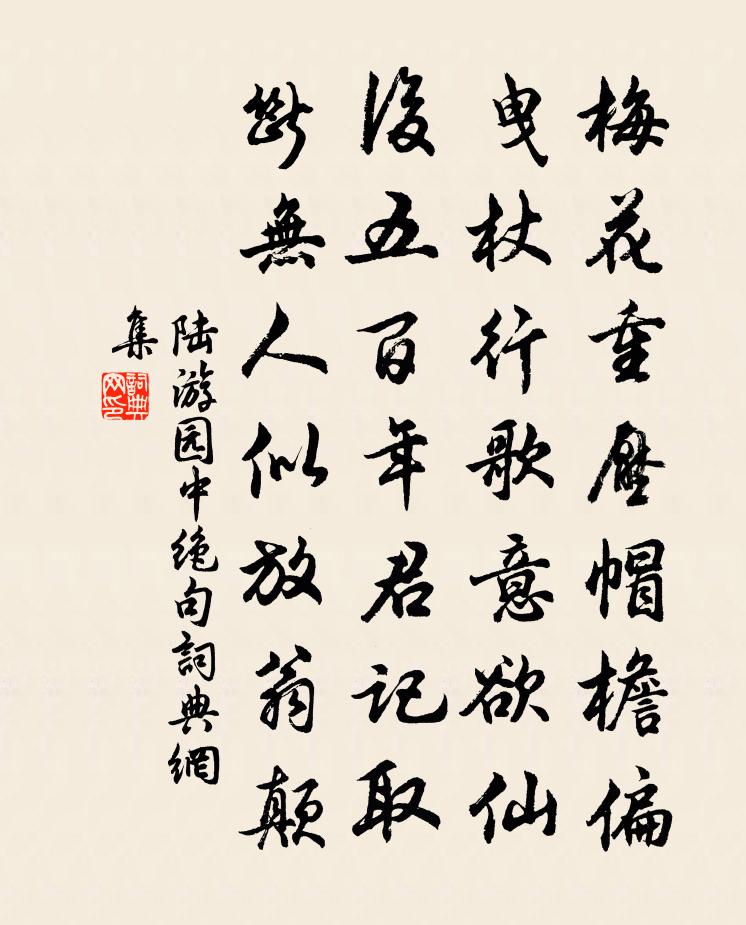 梅花重壓帽檐偏
曳杖行歌意欲仙
後五百年君記取
斷無人似放翁顛
陆游园中绝句詞典網
集
詞典
网印